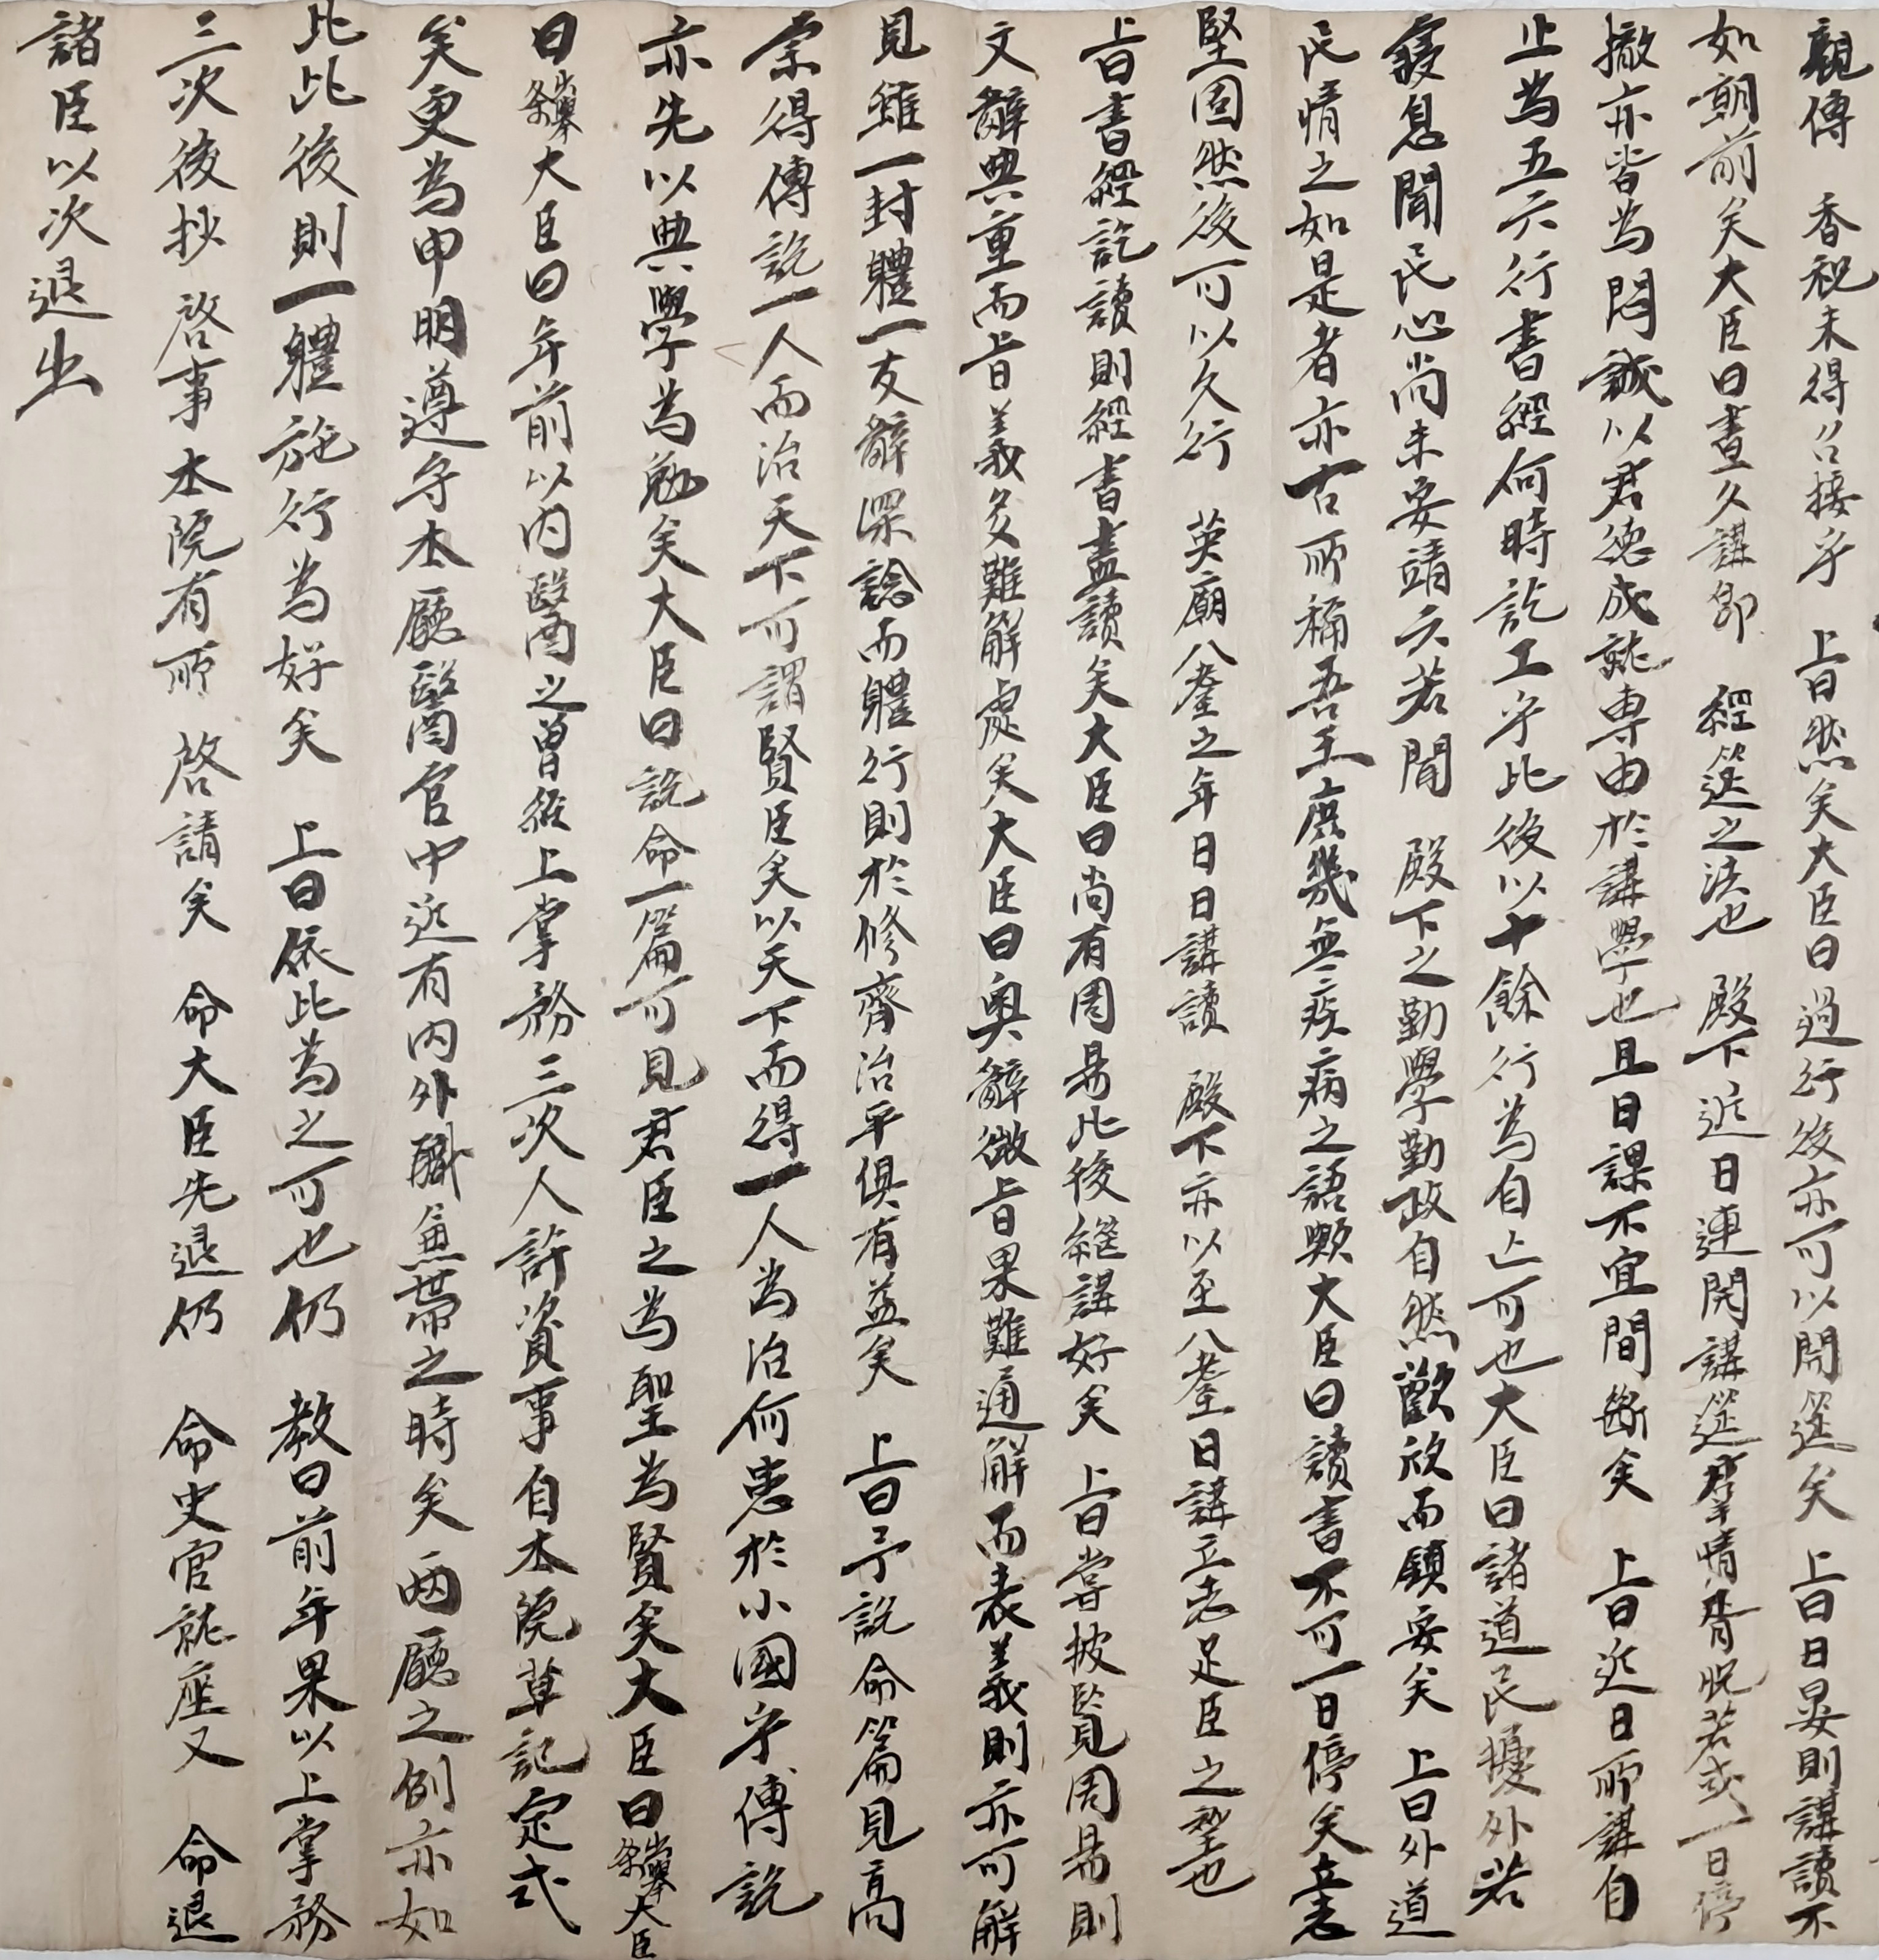 親傳 香祝未得召接乎 上曰然矣大臣曰過行後亦可以開筵矣 上曰日晏則講讀不
如朝前矣大臣曰晝久講卽 經筵之法也 殿下近日連開講筵群情胥悅若或一日停
撤亦皆為悶誠以君德成就専由於講學也且日課不宜間斷矣 上曰近日所講自
止為五六行書經何時訖工乎此後以十餘行為自止可也大臣曰諸道民擾外若
寢息聞民心尚未安靖云若聞 殿下之勤學勤政自然歡欣而鎮妥矣 上曰外道
民情之如是者亦古所稱吾王庶幾無疾病之語歟大臣曰讀書不可一日停矣立志
堅固然後可以久行 英廟八耋之年日日講讀 殿下亦以至八耋日講立志足臣之望也
上曰書經訖讀則經書盡讀矣大臣曰尚有周易此後繼講好矣 上曰嘗披覽周易則
文辭典重而旨義多難解處矣大臣曰奧辭微旨果難通解而表義則亦可解
見雖一封體一友辭深諗而體行則於修齊治平俱有益矣 上曰予說命篇見高
宗得傅說一人而治天下可謂賢臣矣以天下而得一人為治何患於小國乎傅說
亦先以典學為勉矣大臣曰說命一篇可見君臣之為聖為賢矣大臣曰
曰 大臣曰年前以内醫之曾經上掌務三次人許資事自本院草記定式
矣更為申明遵守本廳醫官中近有内外職兼帶之時矣兩廳之例亦如
比比後則一體施行為好矣 上曰依此為之可也仍 教曰前年果以上掌務
三次後抄 啓事本院有所 啓請矣 命大臣先退仍 命史官就座又 命退
諸臣以次退出